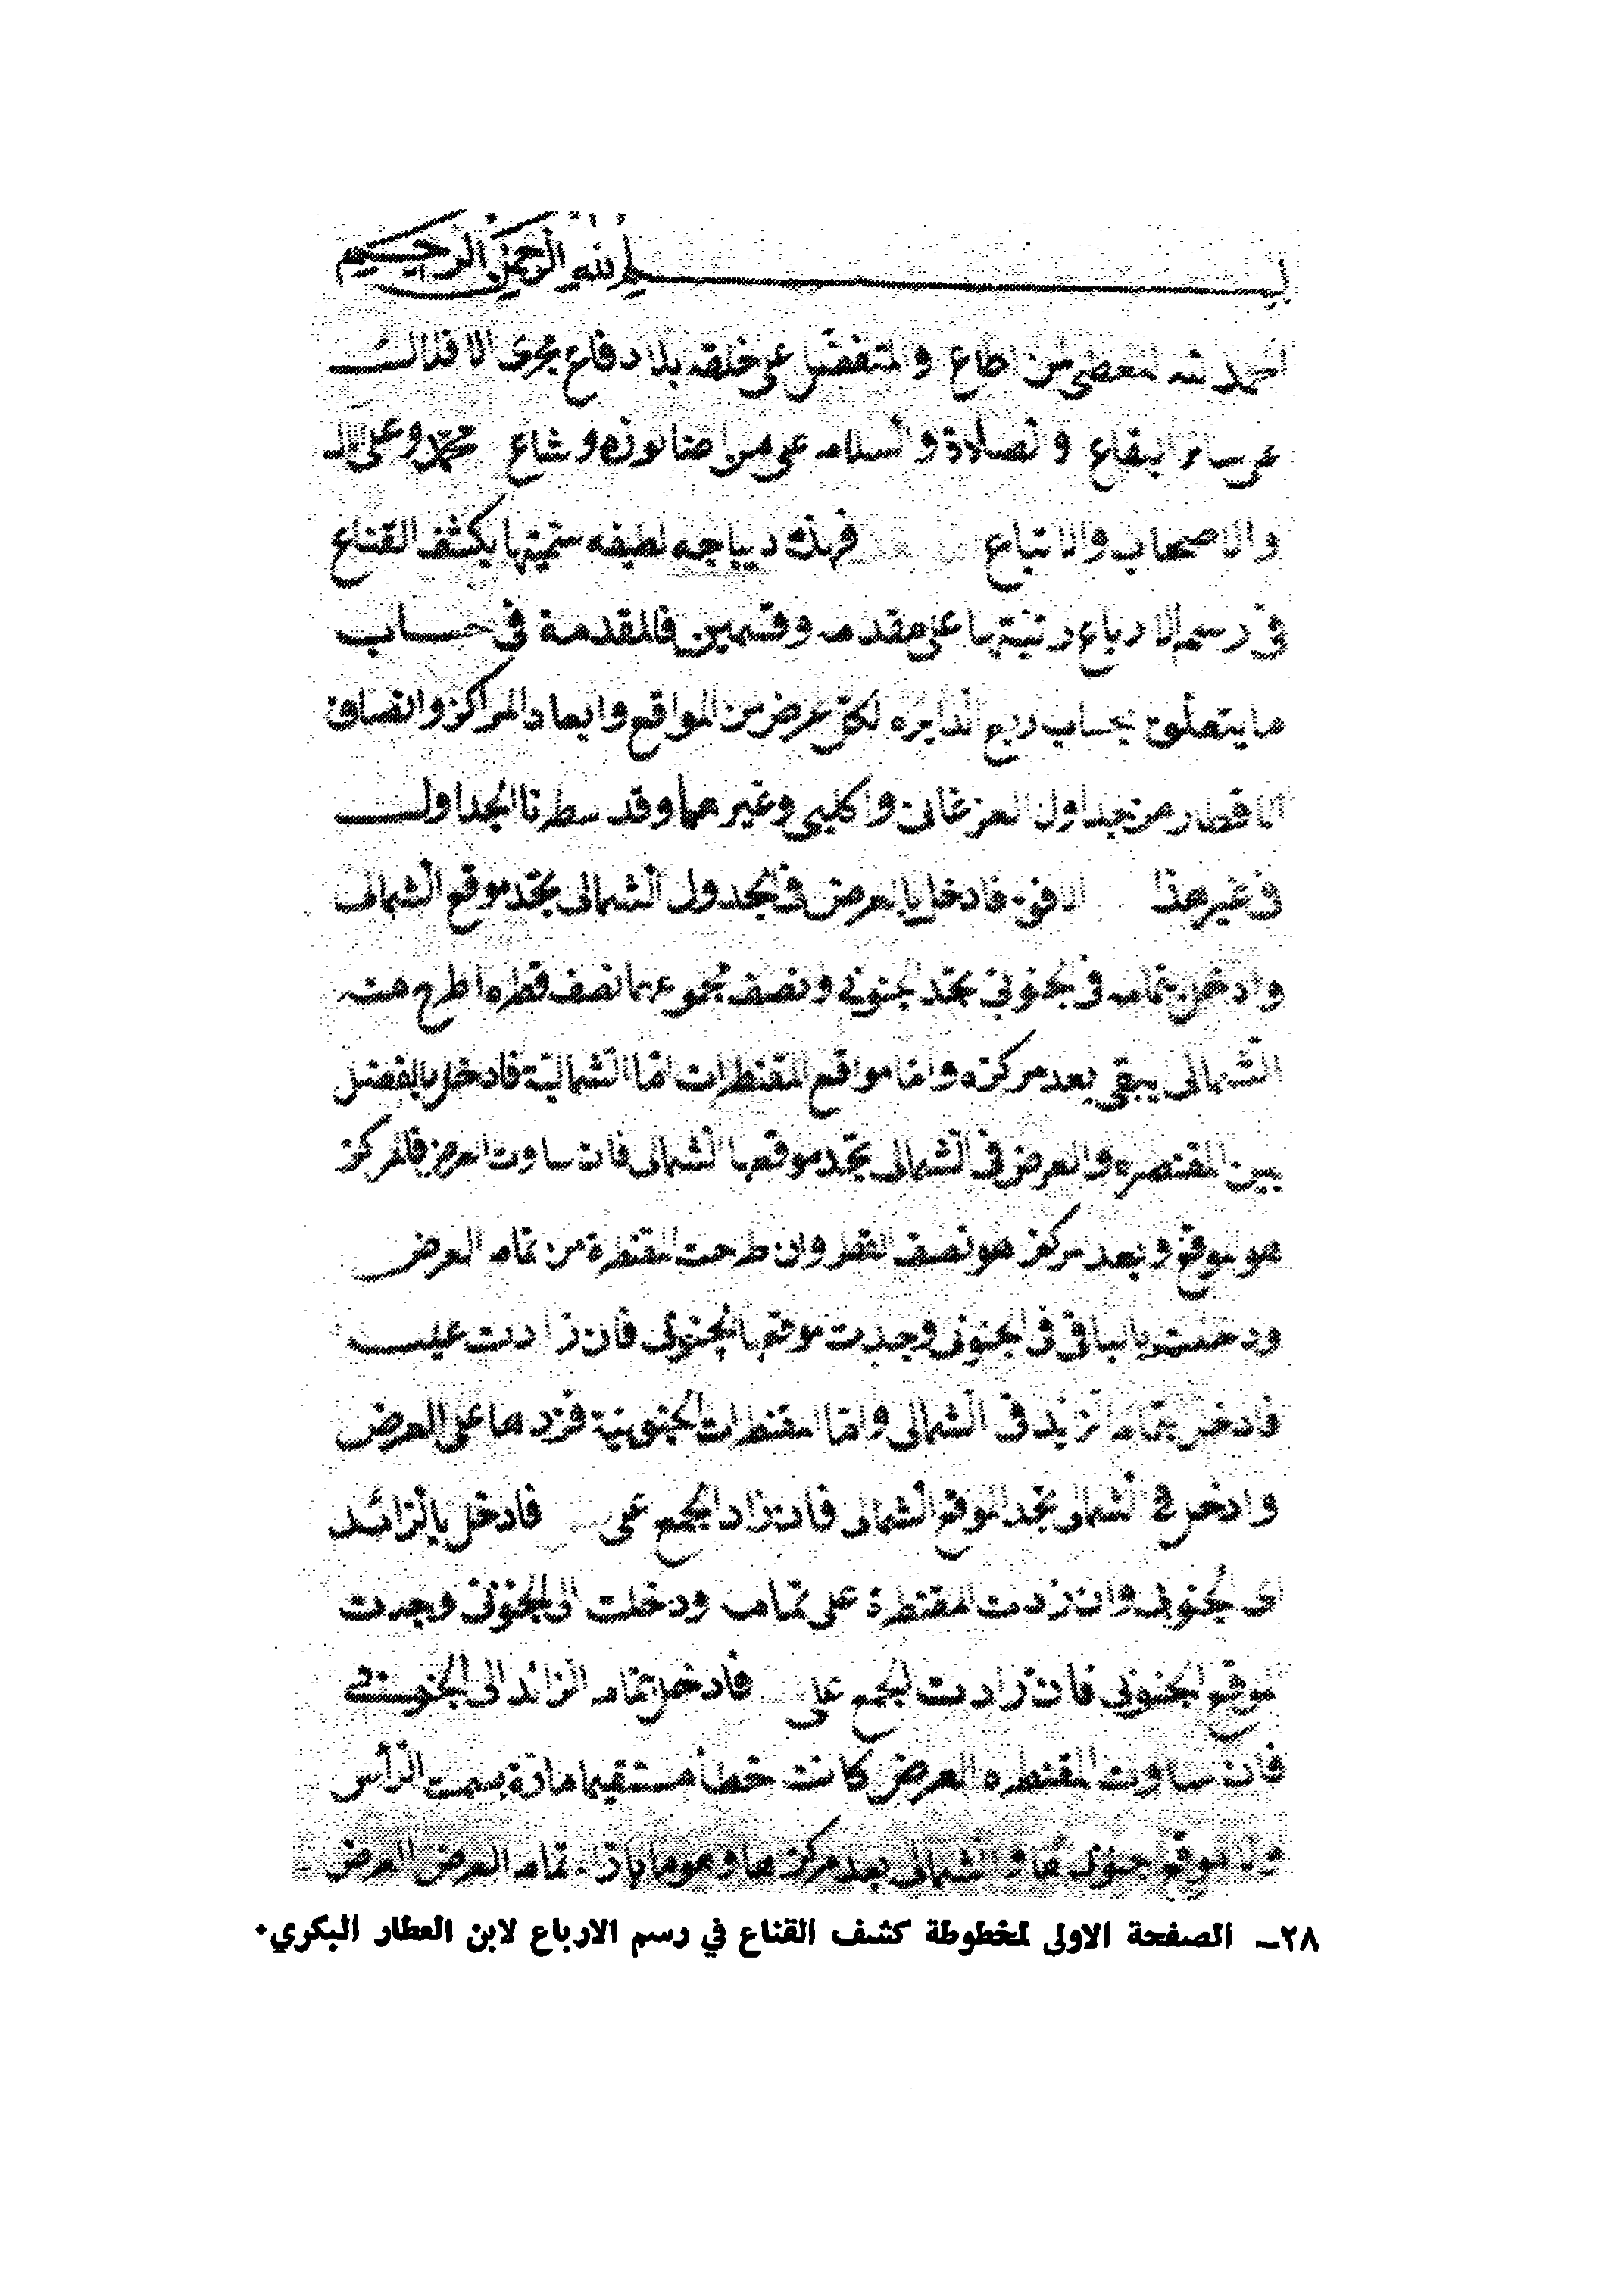 بسم الله الرحمن الرحيم
الحمد لله المعطي من اطاع والمتفضل على خلقه بلا دفاع مجرى الافلاك
على سائر البقاع والصلاة والسلام على من اضا نوره وشاع محمد وعلى اله
والاصحاب والاتباع فهذه ديباجه لطيفه سميتها بكشف القناع
في رسم الارباع ورتبتها على مقدمه وقسمين فالمقدمة في حساب
ما يتعلق بحساب ربع الدايره لكل عرض من المواقع وابعاد المراكز وانصاف
الاقطار من جداول الفرغانى وغيرهما وقد سطرنا الجداول
في غير هذا الافق فادخل بالعرض في الجدول الشمالى تجد موقع الشمالى
وادخل بتمامه في الجنوبي تجد الجنوبي ونصف مجموعهما نصف قطره اطرح منه
الشمالى يبقى بعد مركزه واما مواقع المقنطرات اما الشمالية فادخل بالفضل
بين المقنطره والعرض في الشمالى تجد موقعها الشمالى فان ساوت العرض فالمركز
هو الموقع وبعد المركز هو نصف القطر وان طرحت المقنطرة من تمام العرض
ودخلت بالباقي في الجنوبي وجدت موقعها الجنوبي فان زادت عليه
فادخل بتمام الزايد في الشمالى واما المقنطرات الجنوبية فزدها على العرض
وادخل في الشمالى تجد الموقع الشمالى فان زاد الجمع على فادخل بالزائد
الى الجنوبي وان زدت المقنطرة على تمامه ودخلت الى الجنوبي وجدت
الموقع الجنوبي فان زادت الجمع على فادخل بتمام الزائد الى الجنوبي
فان ساوت المقنطره العرض كانت خطا مستقيما مارة بسمت الراس
ولا موقع جنوبى لها والشمالى بعد مركزها وهو ما بازاء تمام العرض العرض
٢٨ــ الصفحة الاولى لمخطوطة كشف القناع في رسم الارباع لابن العطار البكري٠